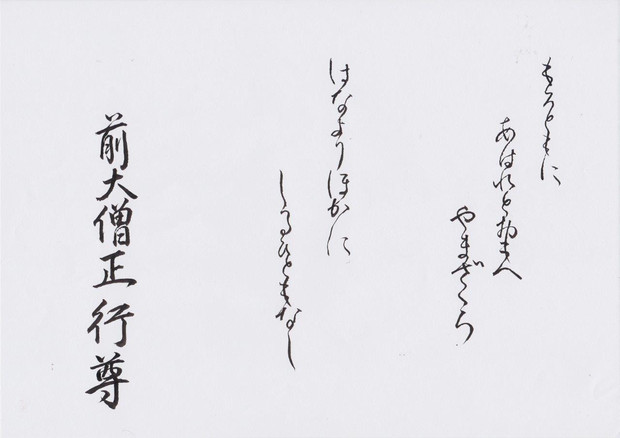 もろともに
あはれとおもへ
やまざくら
はなよりほかに
しるひともなし
前大僧正行尊